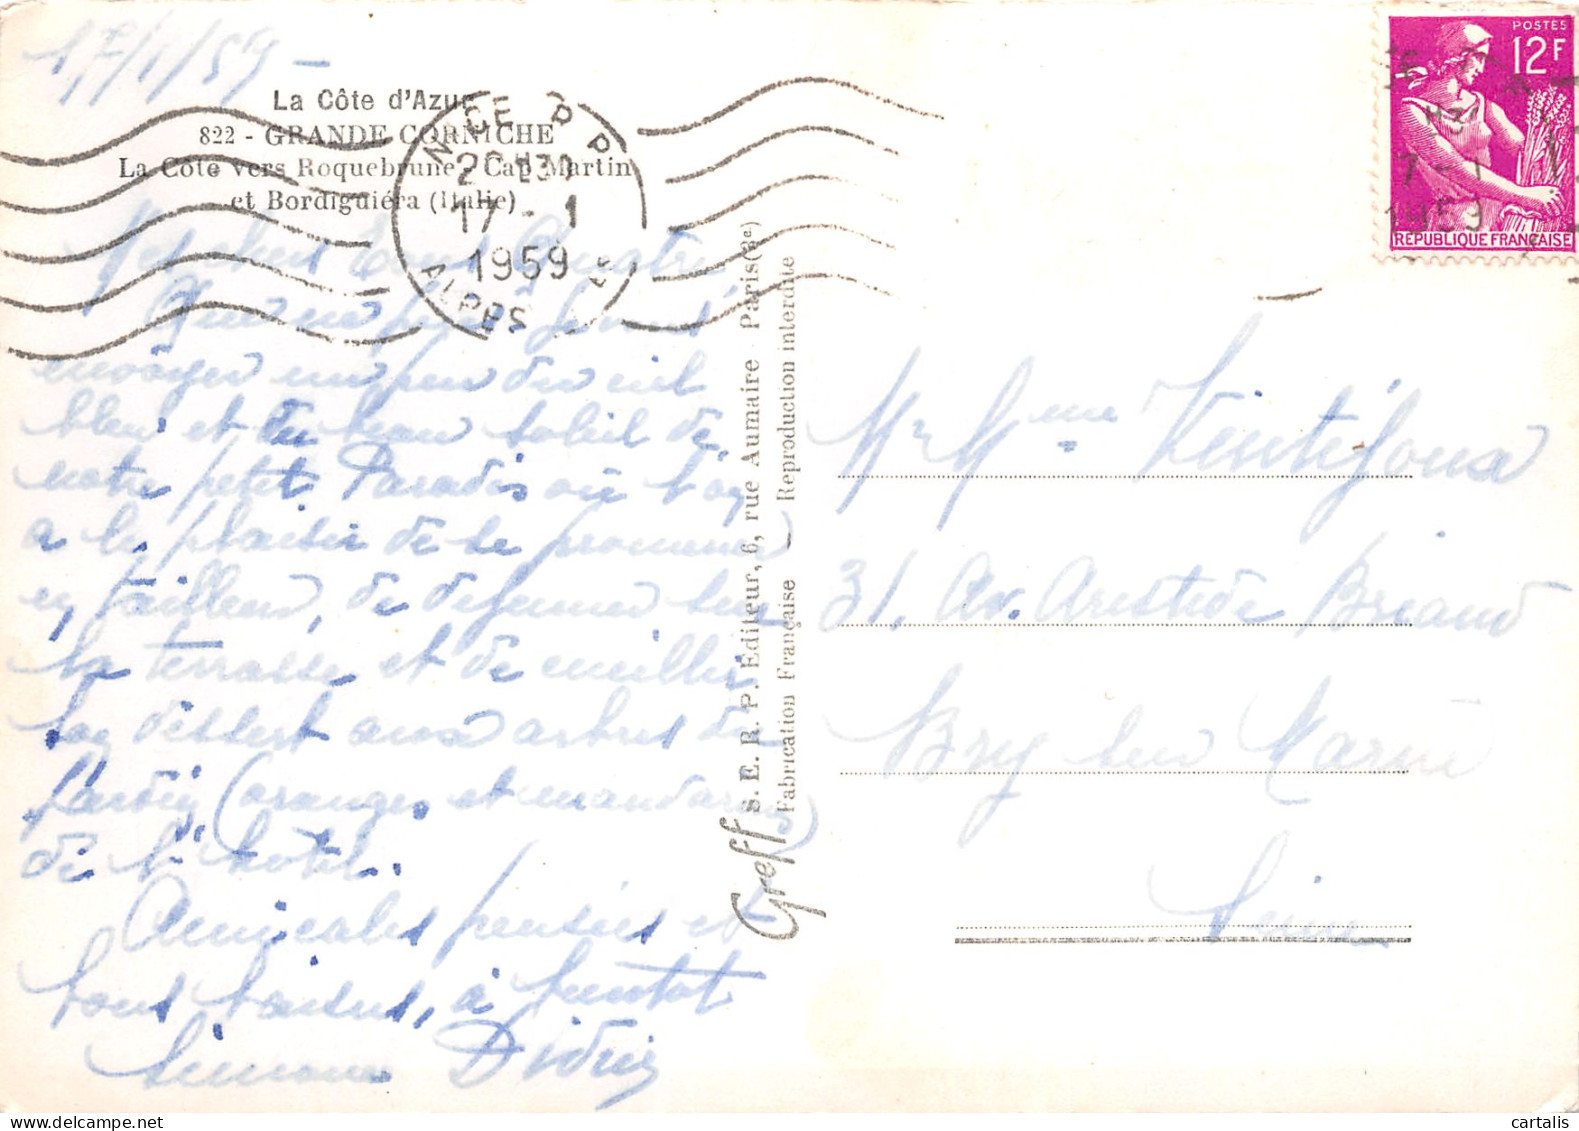 17/1/59 -
La Côte d'Azur
822 - GRANDE CORNICHE
La Côte vers Roquebrune - Cap Martin
et Bordiguiéra (Italie)
NICE P P
17 - 1
1959
ALPES
POSTES
12F
7 - 1
1959
REPUBLIQUE FRANÇAISE
envoyer un peu du ciel
bleu et du beau soleil de
notre petit Paradis où l'on
a le plaisir de se promener
en tailleur, de déjeuner sur
la terrasse et de cueillir
son dessert aux arbres du
jardin, (oranges et mandarines)
de l'hôtel.
Amicales pensées et
bons baisers, à bientôt
Simone Didier
Greff S. E. R. P. Editeur, 6, rue Aumaire - Paris (3e)
Fabrication Française — Reproduction interdite
Mr Mme Ventéjoux
31, Av. Aristide Briand
Bry sur Marne
Seine
cartalis